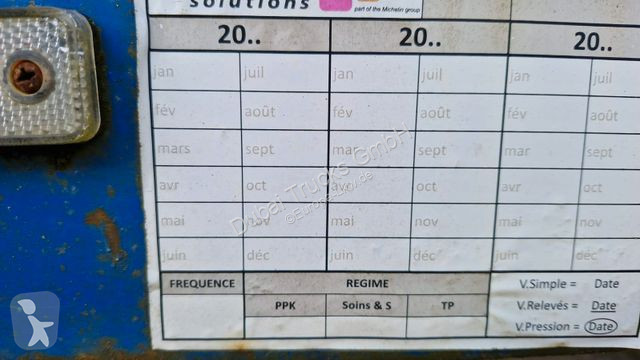 solutions part of the Michelin group
20.. 20.. 20..
jan juil jan juil jan juil
fév août fév août fév août
mars sept mar sept mar sept
avr oct avr oct avr oct
mai nov mai nov mai nov
juin déc juin déc juin déc
FREQUENCE REGIME V.Simple = Date
PPK Soins & S TP V.Relevés = Date
V.Pression = Date
Dubai Trucks GmbH